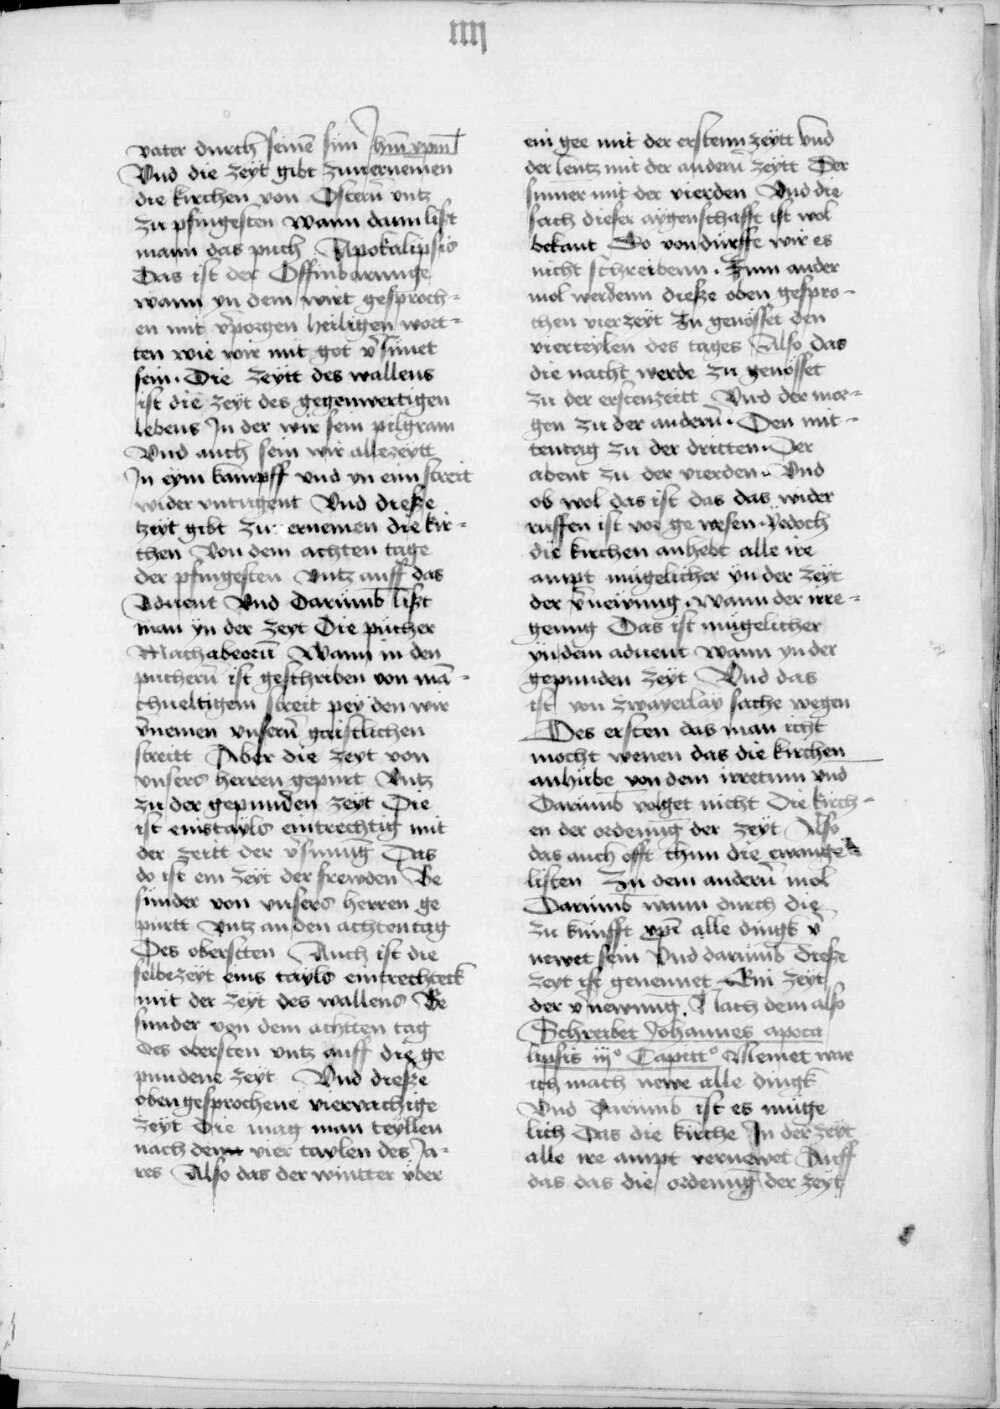 iiij
vater durch seinē sun ihm̄ xpm̄
Vnd die zeyt gibt zuuernemen
die kirchen von Ostern̄ vntz
zu pfingesten wann dann list
mann das puch Apokalipsis
Das ist der Offinbarunge
wann yn dem wirt gesproch-
en mit v̄porgen heiligen wort-
ten wie wir mit got v̄sunet
sein. Die zeytt des wallens
ist die zeyt des gegenwertigen
lebens In der wir sein pilgram
Vnd auch sein wir allezeytt
In eym kampff vnd yn eim streit
wider vntugent Vnd dieße
tzeyt gibt zu uernemen die kir-
chen Von dem achten tage
der pfingesten Vntz auff das
Aduent Vnd Darumb lißt
man yn der zeyt Die pücher
Machabeorū Wann in den
puchern̄ ist geschriben von mā-
chueltigem streit pey den wir
v̄nemen vnsern̄ gaistlichen
streitt Aber die zeyt von
vnsers herren gepurt Vntz
zu der gepunden zeyt Die
ist einstayls eintrechtig mit
der zeitt der v̄sunūg Das
do ist ein zeyt der frewden Be
sunder von vnsers herren ge
purtt Vntz an den achtentag
Des obersten Auch ist die
selbezeyt eins tayls eintrechteck
mit der zeyt des wallens Be
sunder von dem achtten tag
des obersten vntz auff die ge
pundene zeyt Vnd dieße
obengesprochene viervachige
zeyt Die mag man teyllen
nach denn vier taylen des Ja-
res Also das der wintter vber
ein gee mit der erstenn zeytt vnd
der lentz mit der andern̄ zeytt Der
sumer mit der vierden Vnd die
sach dieser aygenschafft ist wol
bekant Do von dürffe wir es
nicht schreibenn. Zum ander
mol werdenn dieße oben gespro-
chen vier zeyt Zu genösset den
vierteylen des tages Also das
die nacht werde zu genösset
zu der erstenzeitt Vnd der mor-
gen zu der andern̄. Den mit-
tentag zu der dritten. Der
abent zu der vierden. Vnd
ob wol das ist das das wider
ruffen ist vor ge wesen. Yedoch
die kirchen anhebt alle ire
ampt mügelicher yn der zeyt
der v̄neirung. Wann der irre-
genng Das ist mügelicher
yn dem aduent wann yn der
gepunden zeyt Vnd das
ist von zwayerlay sache wegen
Des ersten das man icht
mocht wenen das die kirchen
anhübe von dem irretum vnd
Darumb volget nicht Die kirch-
en der ordenūg der zeyt Also
das auch offt thun die ewange
listen Zu dem andern̄ mol
Darumb wann durch die
zu kunfft xpī alle dingk v̄
newet sein Vnd darumb dieße
zeyt ist genennet Ein zeyt
der v̄newūng. Nach dem also
Schreibet Johannes apoca
lipsis iijº Capittº Nemet war
ich mach newe alle dingk
Vnd Darumb ist es müge
lich Das die kirche In der zeyt
alle ire ampt vernewet Auff
das das die ordenūg der zeyt